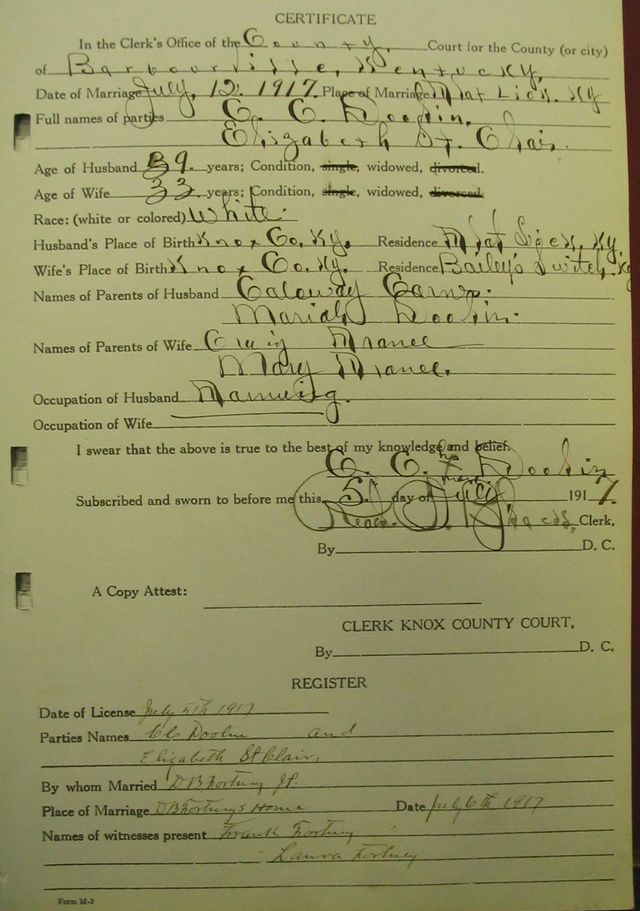 CERTIFICATE
In the Clerk's Office of the County, Court for the County (or city)
of Barbourville, Kentucky,
Date of Marriage July, 12. 1917. Place of Marriage Flat Lick. Ky
Full names of parties C. C. Doolin.
Elizabeth St. Clair.
Age of Husband 39. years; Condition, single, widowed, divorced.
Age of Wife 33 years; Condition, single, widowed, divorced.
Race: (white or colored) White.
Husband's Place of Birth Knox Co. Ky. Residence Flat Lick, Ky.
Wife's Place of Birth Knox Co. Ky. Residence Bailey's Switch, Ky
Names of Parents of Husband Caloway
Mariah Doolin.
Names of Parents of Wife Craig
Mary
Occupation of Husband
Occupation of Wife
I swear that the above is true to the best of my knowledge and belief.
C. C. Doolin
Subscribed and sworn to before me this 5" day of July 1917.
Read. Clerk,
By D. C.
A Copy Attest:
CLERK KNOX COUNTY COURT,
By D. C.
REGISTER
Date of License July 5th 1917
Parties Names CC Doolin and
Elizabeth St Clair,
By whom Married DB Fortney JP.
Place of Marriage DB Fortneys Home Date July 6th 1917
Names of witnesses present Frank Fortney
Laura Fortney
Form M-3